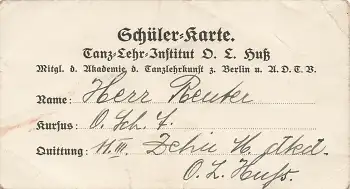 Schüler-Karte.
Tanz-Lehr-Institut O. L. Huß
Mitgl. d. Akademie d. Tanzlehrkunst z. Berlin u. A. D. T. V.
Name: Herr Reuter
Kursus: O. Sch. f.
Quittung: 11. III. Zehn M. dkd.
O. L. Huss.